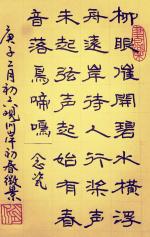 柳眼催開碧水橫浮
舟遠岸待人行桨声
未起弦声起始有春
音落鳥啼囑 念瓷
庚子二月初二观 初春微景